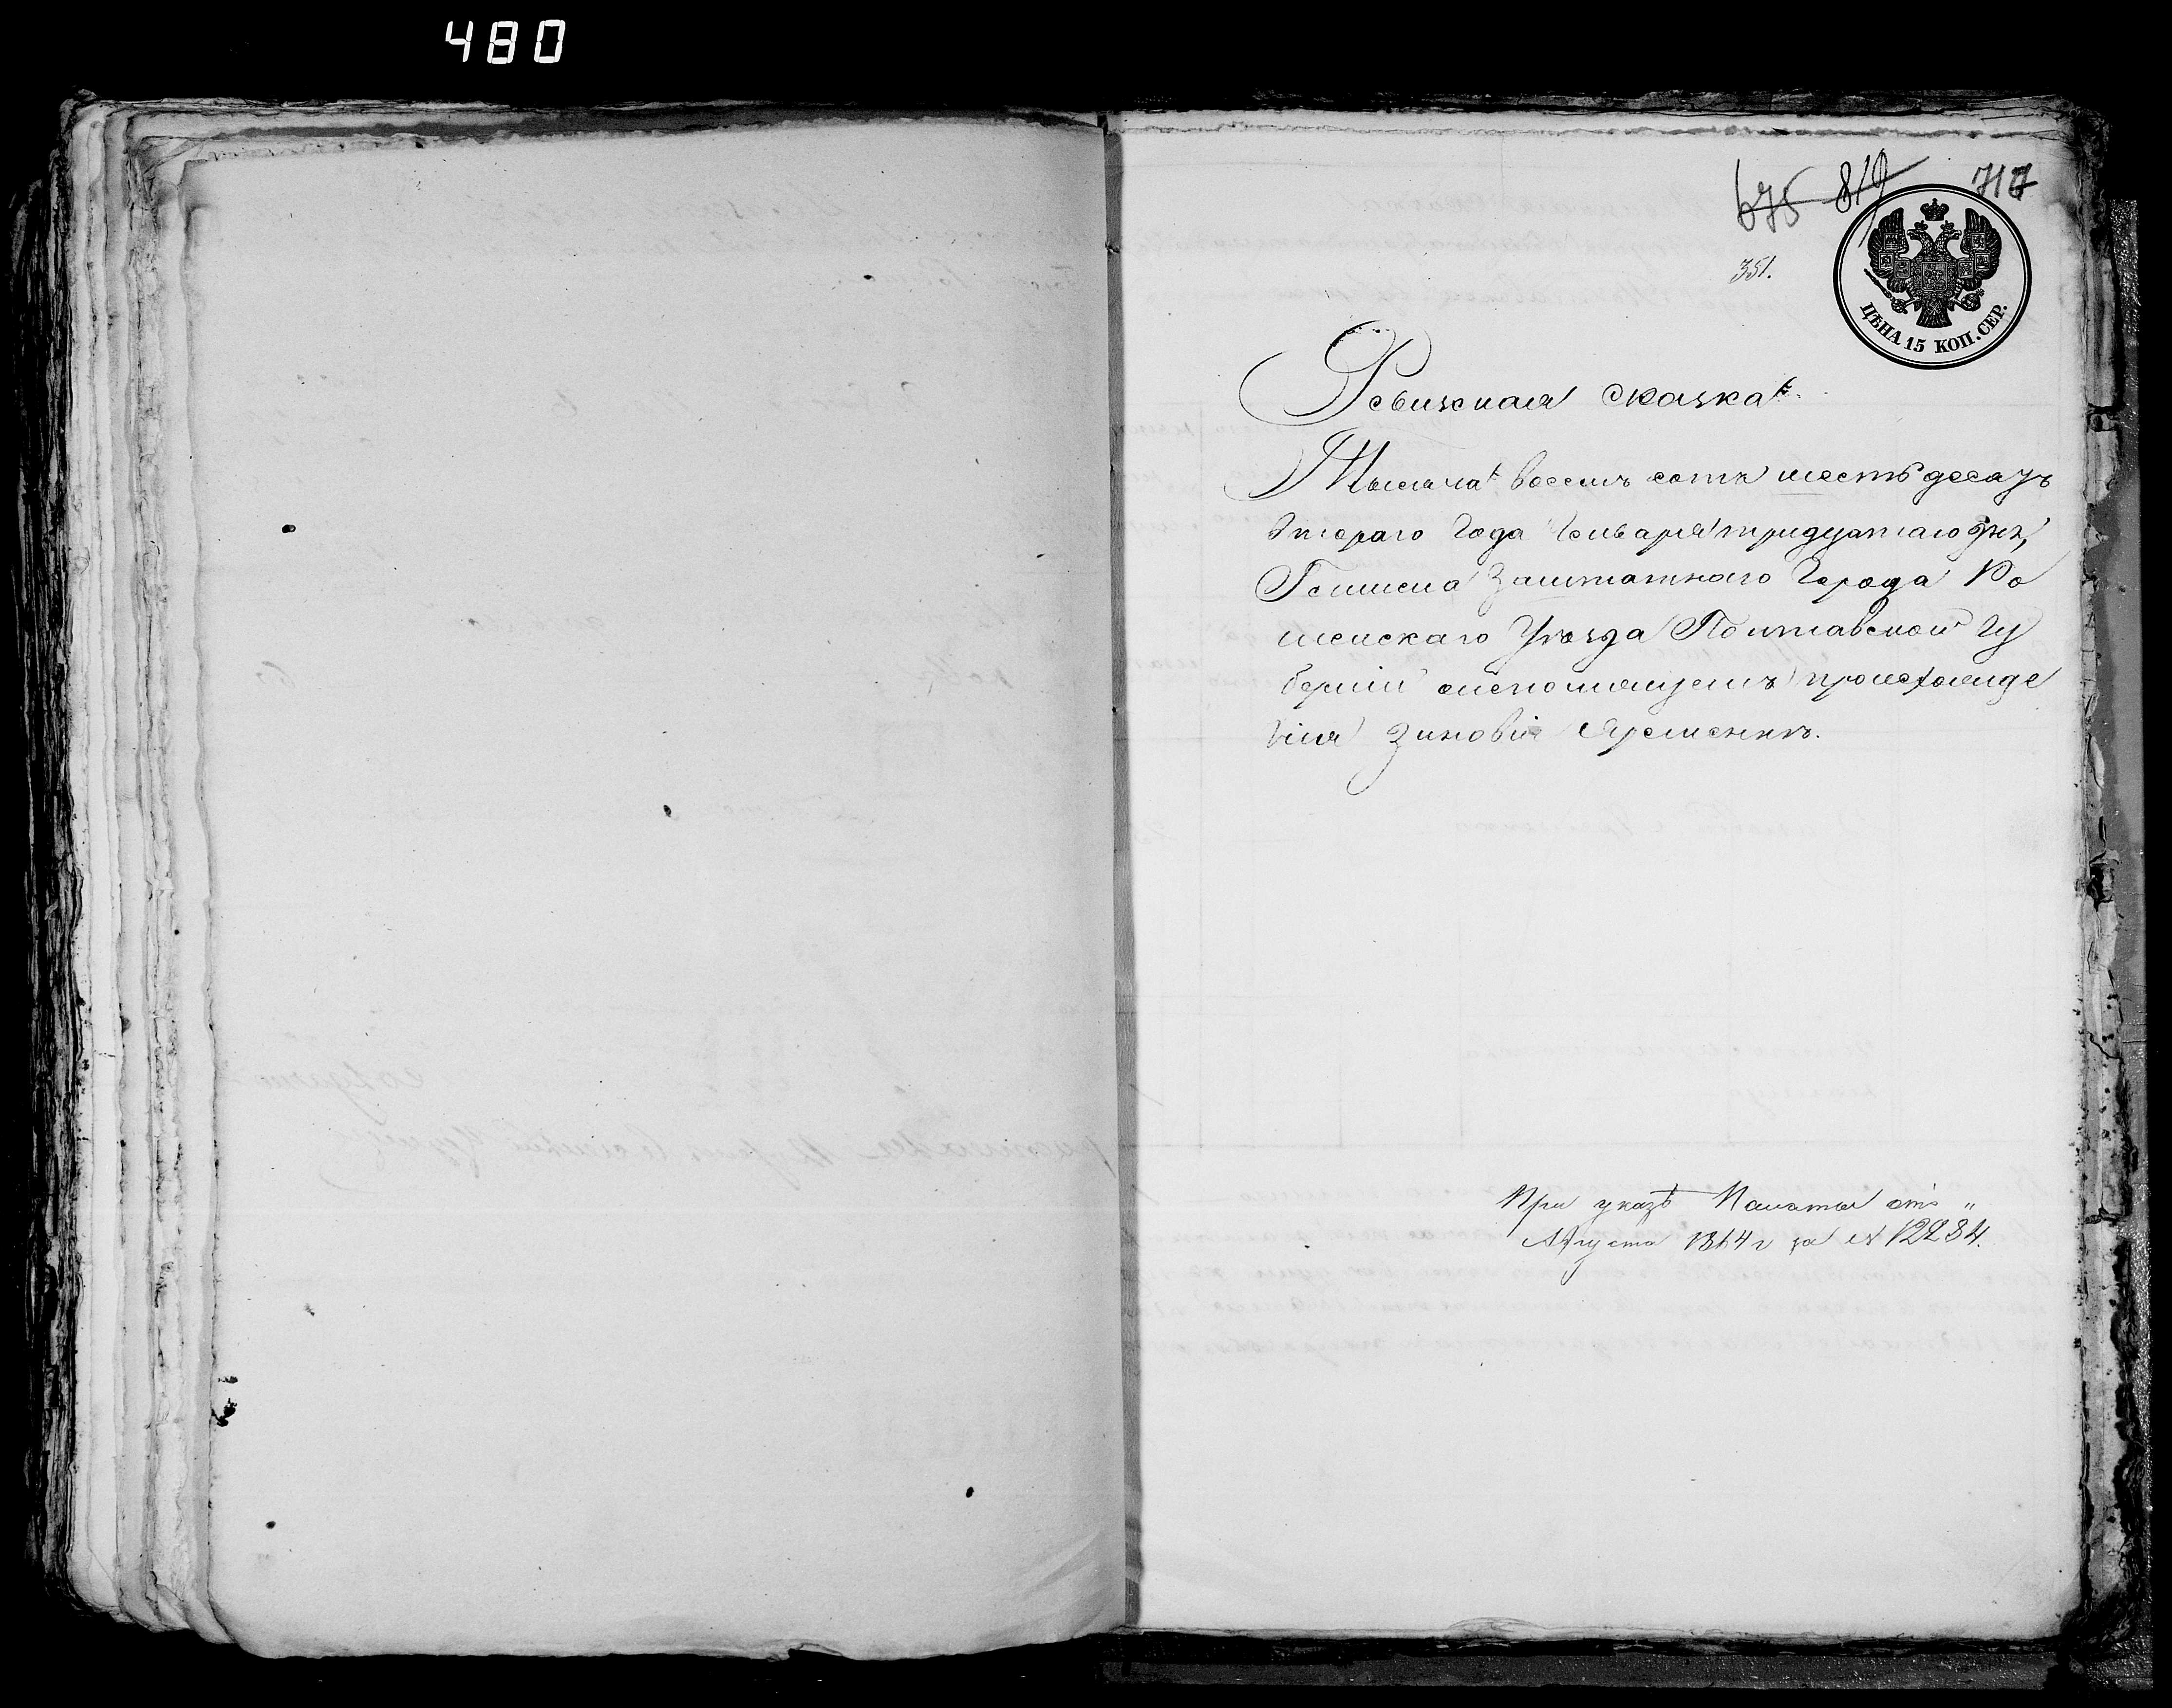 480
675 819 717
351.
ЦѢНА 15 КОП. СЕР.
Ревижская сказка.
Тысяча восемь сотъ шестьдесятъ
втораго Года Генваря тридцатаго дня,
Заштатнаго Города Ро
менскаго Уѣзда Полтавской Гу
берніи происхожде
нія Зиновія Яременка.
При указѣ Палаты отъ "
Августа 1864 г за № 12284.